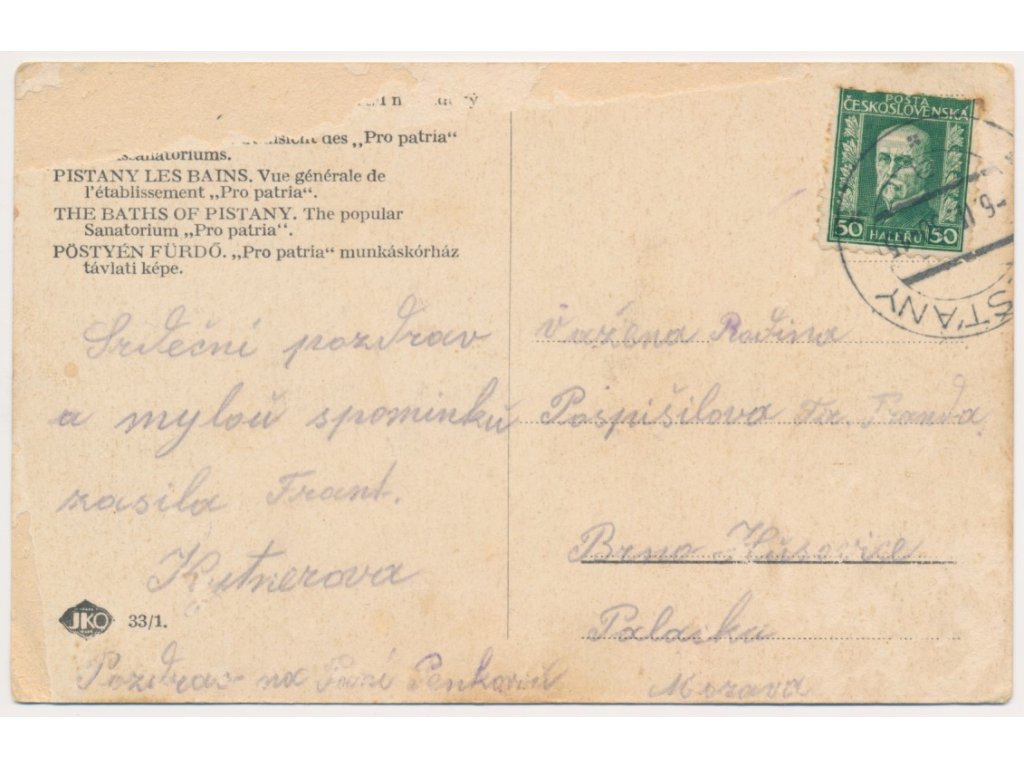 „Pro patria“
PISTANY LES BAINS. Vue générale de
l'établissement „Pro patria“.
THE BATHS OF PISTANY. The popular
Sanatorium „Pro patria“.
PÖSTYÉN FÜRDŐ. „Pro patria“ munkáskórház
távlati képe.
Srdečni pozdrav
a myloů spominků
zasila Frant.
Kutnerova
JKO 33/1.
Pozdrav na Paní
POSTA
ČESKOSLOVENSKÁ
50 HALERU 50
ŠŤANY
Važena Rodina
Pospišilova Franda
Brno Husovice
Palaska
Morava